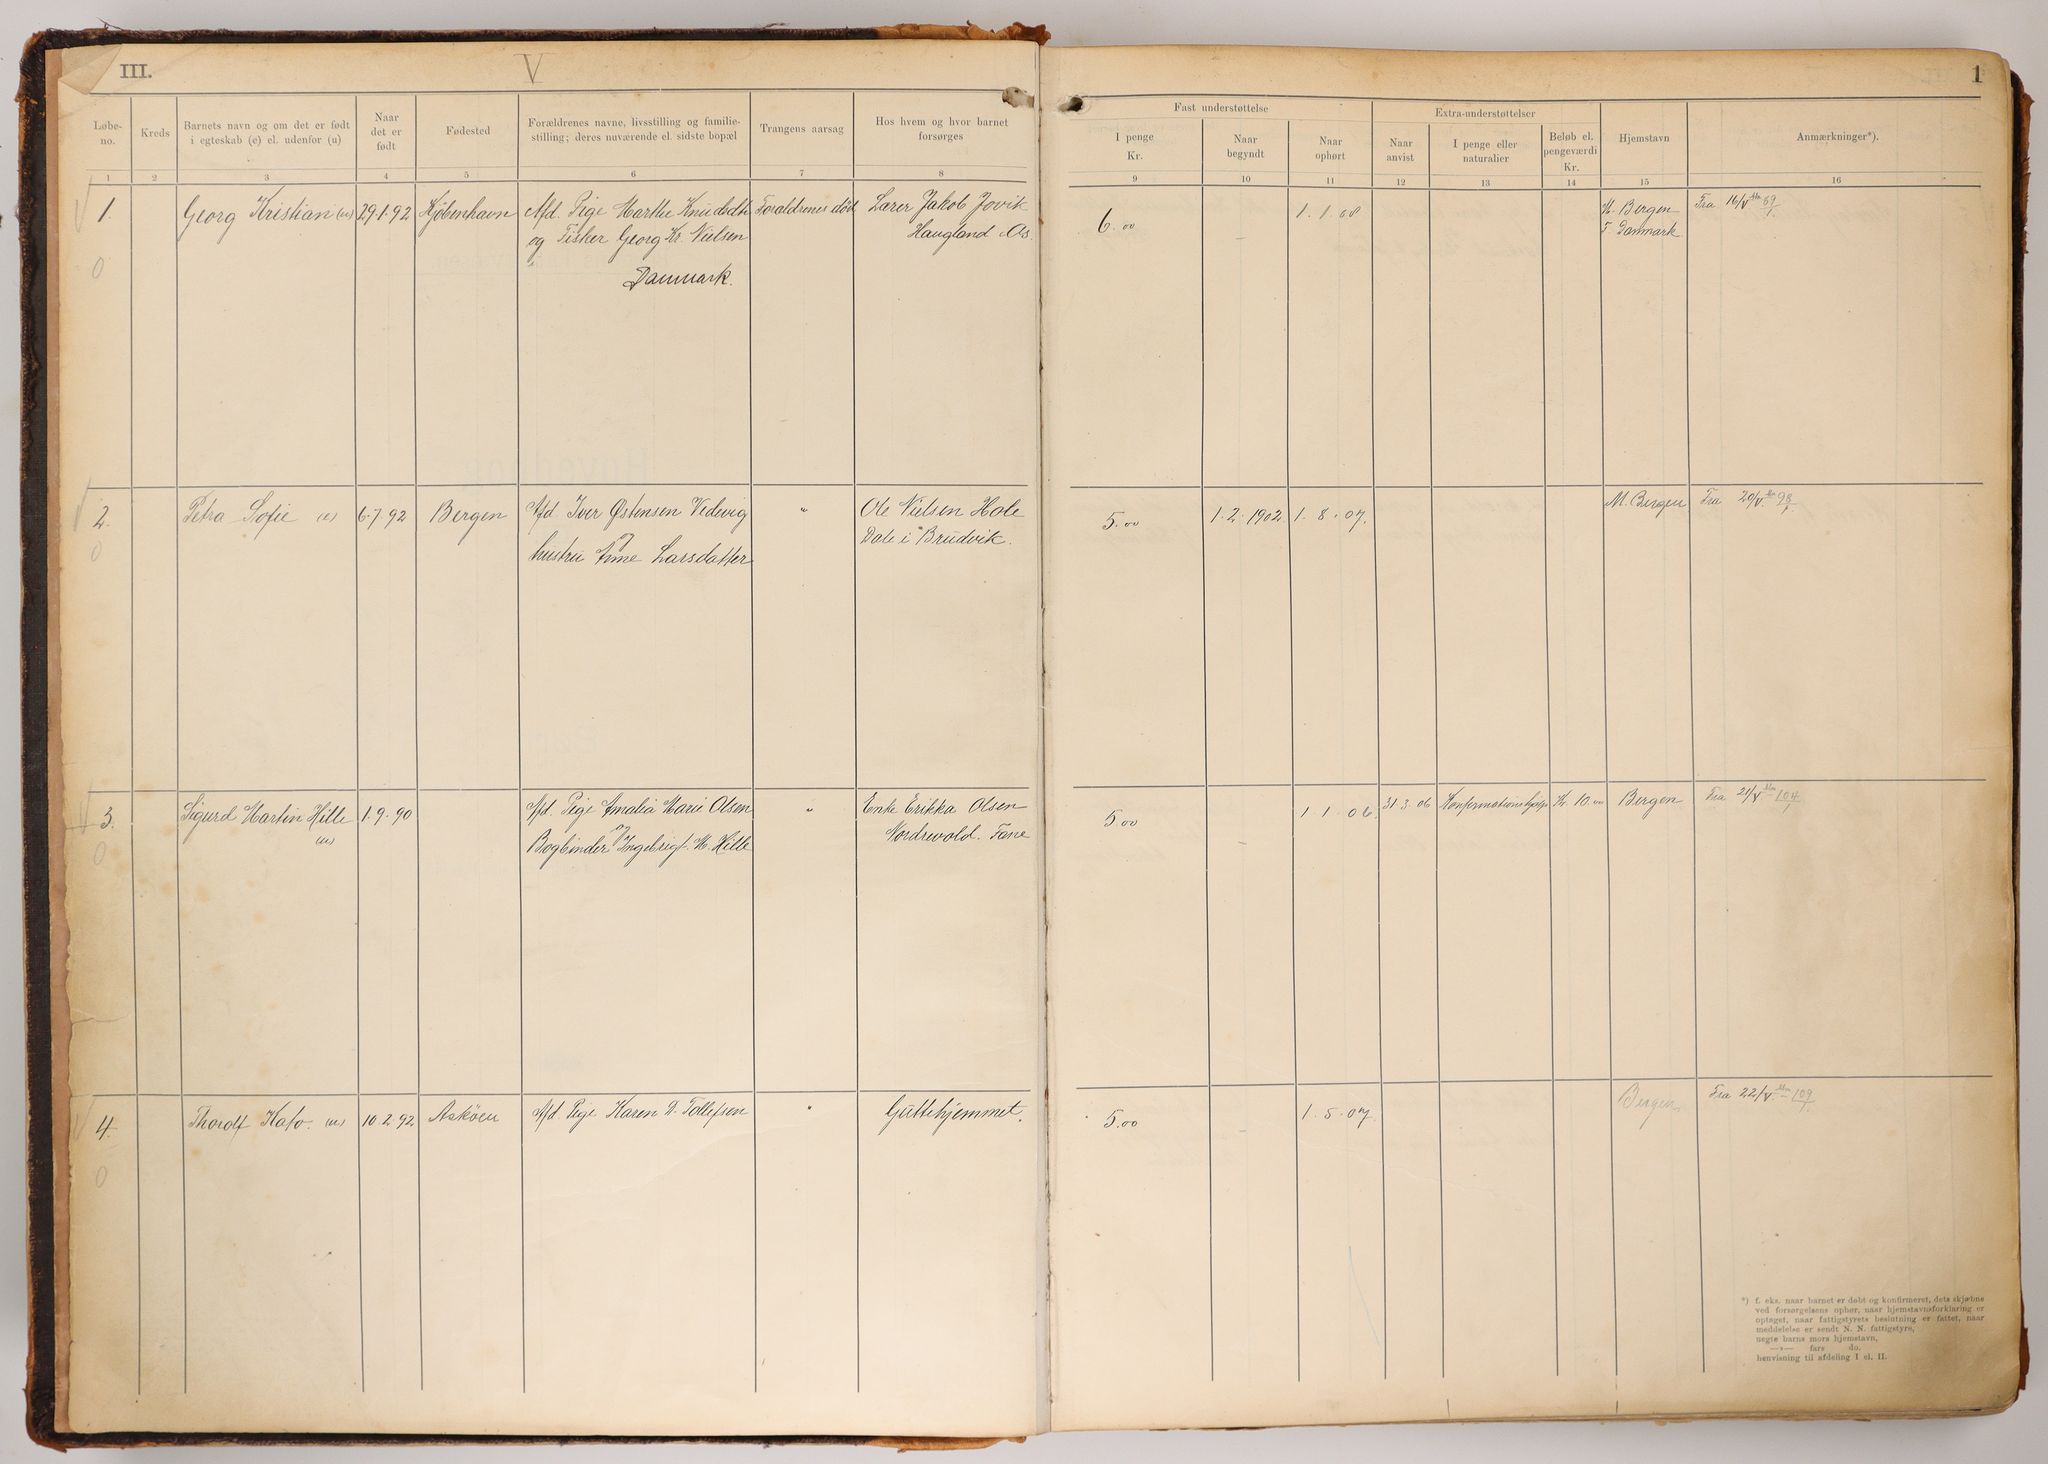 III.
V
1
Løbe-
no.
Kreds
Barnets navn og om det er født
i egteskab (e) el. udenfor (u)
Naar
det er
født
Fødested
Forældrenes navne, livsstilling og familie-
stilling; deres nuværende el. sidste bopæl
Trangens aarsag
Hos hvem og hvor barnet
forsørges
Fast understøttelse
I penge
Kr.
Naar
begyndt
Naar
ophørt
Extra-understøttelser
Naar
anvist
I penge eller
naturalier
Beløb el.
pengeværdi
Kr.
Hjemstavn
Anmærkninger*).
1 2 3 4 5 6 7 8 9 10 11 12 13 14 15 16
1. Georg Kristian (u) 29.1.92 Kjöbenhavn Afd. Pige Marthe Knudsdtr. Forældrenes död Lærer Jakob Jovik 6.00 1.1.08 M. Bergen Fra 16/V 89/1.
0 og Fisker Georg Kr. Nielsen Haugland Os. F. Danmark
Danmark.
2. Petra Sofie (e) 6.7.92 Bergen Afd Iver Østensen Vedvig " Ole Nielsen Hole 5.00 1.2.1902. 1.8.07. M. Bergen Fra 20/V. 98/1.
0 hustru Anne Larsdatter Dale i Brudvik.
3. Sigurd Martin Hille 1.9.90 Afd. Pige Amalia Marie Olsen " Enke Erikka Olsen 5.00 1.1.06. 31.3.06 Konfirmationshjælp Kr. 10.00 Bergen Fra 21/V 104/1
0 (u) og Bogbinder Ingebrigt. M. Hille Nordrevold. Fane
4. Thorolf Kato. (u) 10.2.92 Asköen Afd. Pige Karen D. Tollefsen " Guttehjemmet. 5.00 1.5.07. Bergen Fra 22/V. 109/1.
0
*) f. eks. naar barnet er døbt og konfirmeret, dets skjæbne
ved forsørgelsens ophør, naar hjemstavnsforklaring er
optaget, naar fattigstyrets beslutning er fattet, naar
meddelelse er sendt N. N. fattigstyre,
uegte barns mors hjemstavn,
—»— fars do.
henvisning til afdeling I el. II.